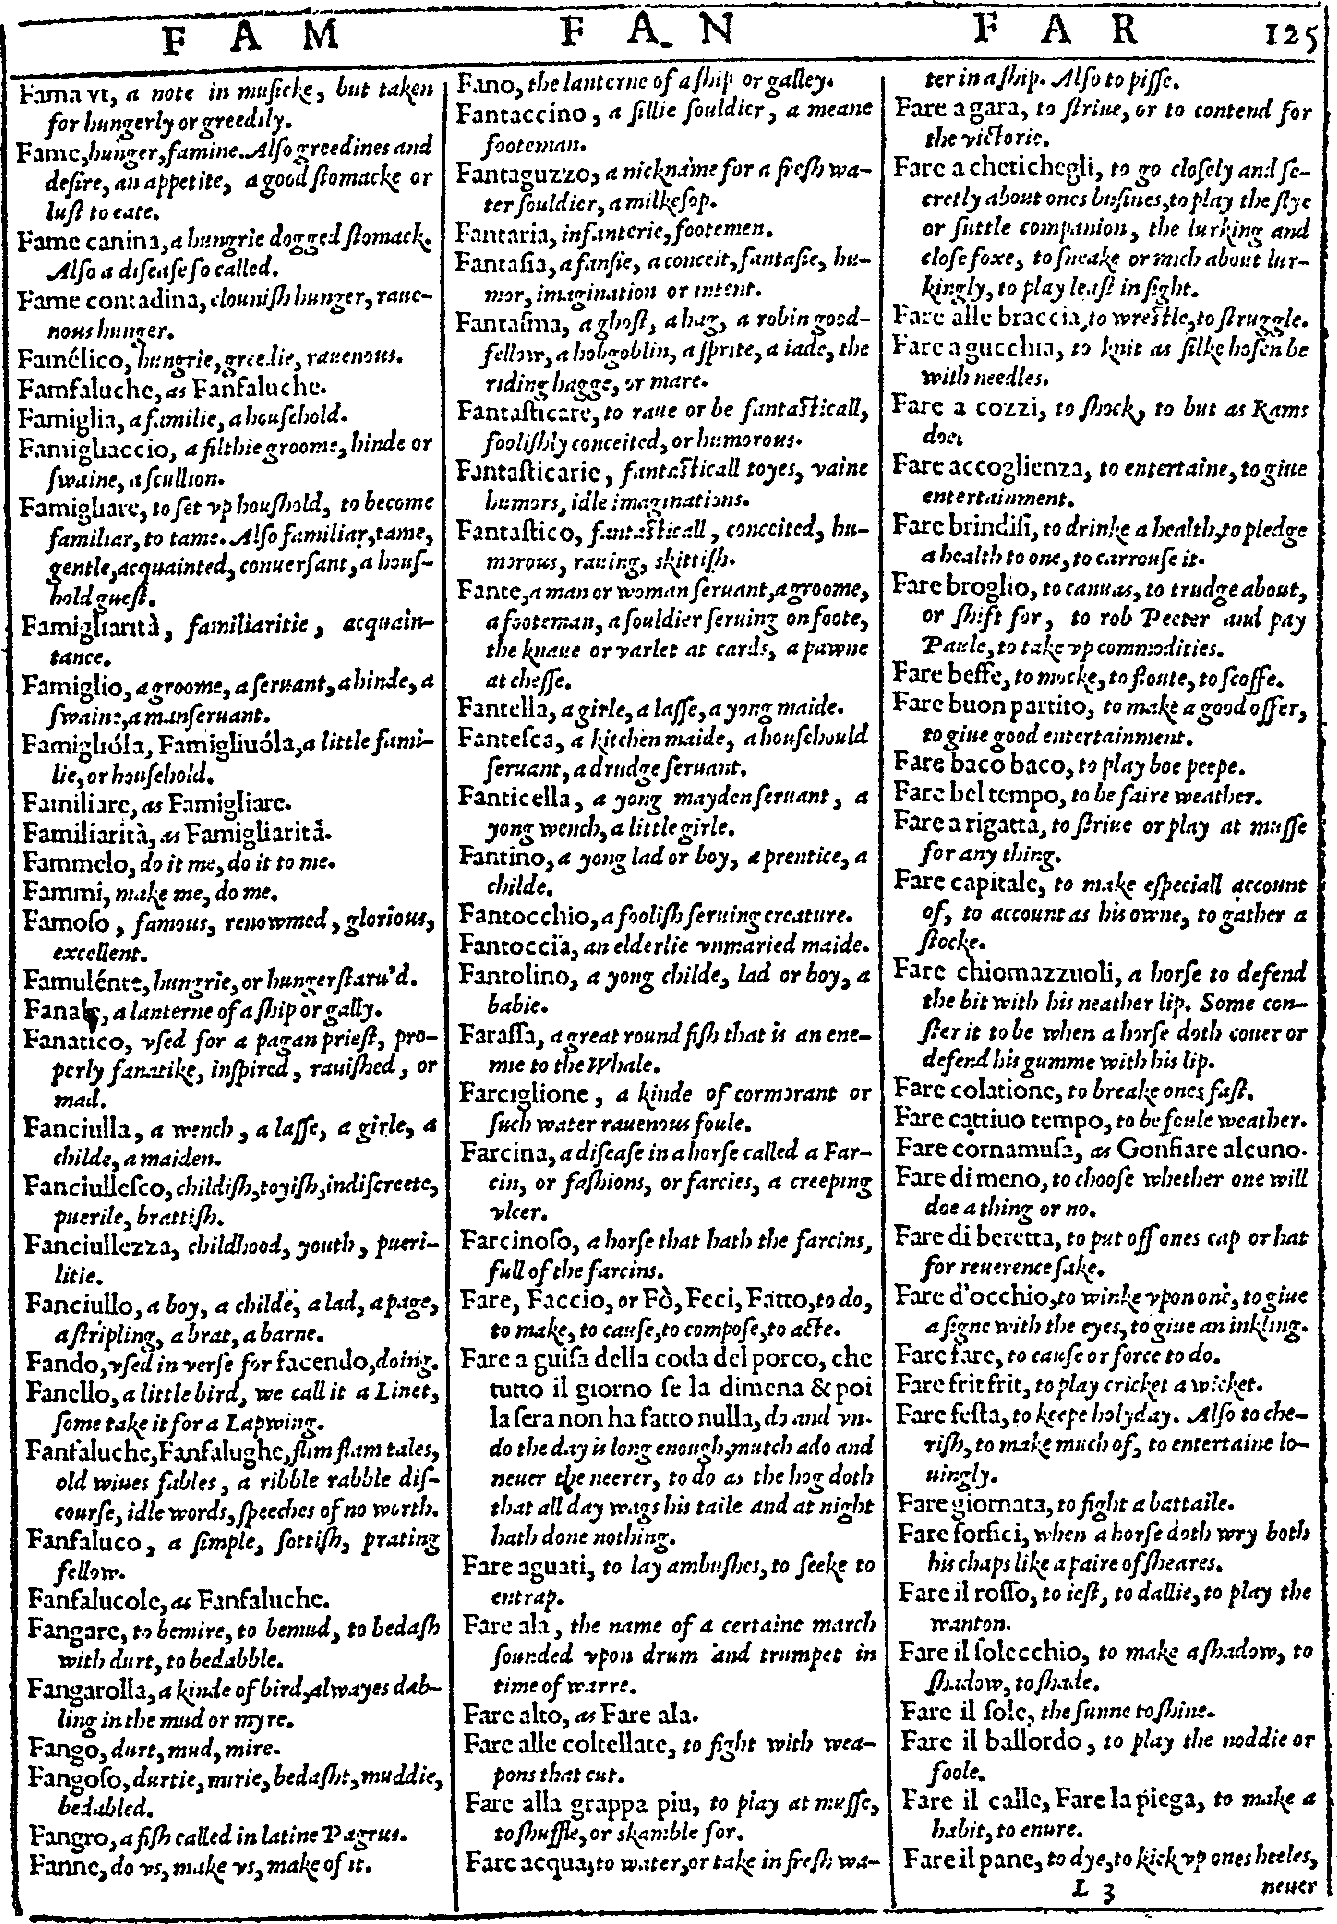 F A M F A N F A R 125
Fama vt, a note in musicke, but taken
for hungerly or greedily.
Fame, hunger, famine. Also greedines and
desire, an appetite, a good stomacke or
lust to eate.
Fame canina, a hungrie dogged stomack.
Also a disease so called.
Fame contadina, clounish hunger, raue-
nous hunger.
Famélico, hungrie, greedie, rauenous.
Famfaluche, as Fanfaluche.
Famiglia, a familie, a household.
Famigliaccio, a filthie groome, hinde or
swaine, a scullion.
Famigliare, to set vp houshold, to become
familiar, to tame. Also familiar, tame,
gentle, acquainted, conuersant, a hous-
hold guest.
Famigliarità, familiaritie, acquain-
tance.
Famiglio, a groome, a seruant, a hinde, a
swaine, a manseruant.
Famiglióla, Famigliuóla, a little fami-
lie, or household.
Familiare, as Famigliare.
Familiarità, as Famigliarità.
Fammelo, do it me, do it to me.
Fammi, make me, do me.
Famoso, famous, renowmed, glorious,
excellent.
Famulénte, hungrie, or hungerstaru'd.
Fanale, a lanterne of a ship or gally.
Fanatico, vsed for a pagan priest, pro-
perly fanatike, inspired, rauished, or
mad.
Fanciulla, a wench, a lasse, a girle, a
childe, a maiden.
Fanciullesco, childish, toyish, indiscreete,
puerile, brattish.
Fanciullezza, childhood, youth, pueri-
litie.
Fanciullo, a boy, a childe, a lad, a page,
a stripling, a brat, a barne.
Fando, vsed in verse for facendo, doing.
Fanello, a little bird, we call it a Linet,
some take it for a Lapwing.
Fanfaluche, Fanfalughe, flim flam tales,
old wiues fables, a ribble rabble dis-
course, idle words, speeches of no worth.
Fanfaluco, a simple, sottish, prating
fellow.
Fanfalucole, as Fanfaluche.
Fangare, to bemire, to bemud, to bedash
with durt, to bedabble.
Fangarolla, a kinde of bird, alwayes dab-
ling in the mud or myre.
Fango, durt, mud, mire.
Fangoso, durtie, mirie, bedasht, muddie,
bedabled.
Fangro, a fish called in latine Pagrus.
Fanne, do vs, make vs, make of it.
Fano, the lanterne of a ship or galley.
Fantaccino, a sillie souldier, a meane
footeman.
Fantaguzzo, a nickname for a fresh wa-
ter souldier, a milkesop.
Fantaria, infanterie, footemen.
Fantasia, a fansie, a conceit, fantasie, hu-
mor, imagination or intent.
Fantasima, a ghost, a hag, a robin good-
fellow, a hobgoblin, a sprite, a iade, the
riding hagge, or mare.
Fantasticare, to raue or be fantasticall,
foolishly conceited, or humorous.
Fantasticarie, fantasticall toyes, vaine
humors, idle imaginations.
Fantastico, fantasticall, conceited, hu-
morous, rauing, skittish.
Fante, a man or woman seruant, a groome,
a footeman, a souldier seruing on foote,
the knaue or varlet at cards, a pawne
at chesse.
Fantella, a girle, a lasse, a yong maide.
Fantesca, a kitchen maide, a househould
seruant, a drudge seruant.
Fanticella, a yong mayden seruant, a
yong wench, a little girle.
Fantino, a yong lad or boy, a prentice, a
childe.
Fantocchio, a foolish seruing creature.
Fantoccia, an elderlie vnmaried maide.
Fantolino, a yong childe, lad or boy, a
babie.
Farassa, a great round fish that is an ene-
mie to the Whale.
Farciglione, a kinde of cormorant or
such water rauenous foule.
Farcina, a disease in a horse called a Far-
cin, or fashions, or farcies, a creeping
vlcer.
Farcinoso, a horse that hath the farcins,
full of the farcins.
Fare, Faccio, or Fò, Feci, Fatto, to do,
to make, to cause, to compose, to acte.
Fare a guisa della coda del porco, che
tutto il giorno se la dimena & poi
la sera non ha fatto nulla, do and vn-
do the day is long enough, mutch ado and
neuer the neerer, to do as the hog doth
that all day wags his taile and at night
hath done nothing.
Fare aguati, to lay ambushes, to seeke to
entrap.
Fare ala, the name of a certaine march
sounded vpon drum and trumpet in
time of warre.
Fare alto, as Fare ala.
Fare alle coltellate, to fight with wea-
pons that cut.
Fare alla grappa piu, to play at musse,
to shuffle, or skamble for.
Fare acqua, to water, or take in fresh wa-
ter in a ship. Also to pisse.
Fare a gara, to striue, or to contend for
the victorie.
Fare a chetichegli, to go closely and se-
cretly about ones busines, to play the slye
or suttle companion, the lurking and
close foxe, to sneake or mich about lur-
kingly, to play least in sight.
Fare alle braccia, to wrestle, to struggle.
Fare a gucchia, to knit as silke hosen be
with needles.
Fare a cozzi, to shock, to but as Rams
doe.
Fare accoglienza, to entertaine, to giue
entertainment.
Fare brindisi, to drinke a health, to pledge
a health to one, to carrouse it.
Fare broglio, to canuas, to trudge about,
or shift for, to rob Peeter and pay
Paule, to take vp commodities.
Fare beffe, to mocke, to floute, to scoffe.
Fare buon partito, to make a good offer,
to giue good entertainment.
Fare baco baco, to play boe peepe.
Fare bel tempo, to be faire weather.
Fare a rigatta, to striue or play at musse
for any thing.
Fare capitale, to make especiall account
of, to account as his owne, to gather a
stocke.
Fare chiomazzuoli, a horse to defend
the bit with his neather lip. Some con-
ster it to be when a horse doth couer or
defend his gumme with his lip.
Fare colatione, to breake ones fast.
Fare cattiuo tempo, to be foule weather.
Fare cornamusa, as Gonfiare alcuno.
Fare di meno, to choose whether one will
doe a thing or no.
Fare di beretta, to put off ones cap or hat
for reuerence sake.
Fare d'occhio, to winke vpon one, to giue
a signe with the eyes, to giue an inkling.
Fare fare, to cause or force to do.
Fare frit frit, to play cricket a wicket.
Fare festa, to keepe holyday. Also to che-
rish, to make much of, to entertaine lo-
uingly.
Fare giornata, to fight a battaile.
Fare forfici, when a horse doth wry both
his chaps like a paire of sheares.
Fare il rosso, to iest, to dallie, to play the
wanton.
Fare il solecchio, to make a shadow, to
shadow, to shade.
Fare il sole, the sunne to shine.
Fare il ballordo, to play the noddie or
foole.
Fare il calle, Fare la piega, to make a
habit, to enure.
Fare il pane, to dye, to kick vp ones heeles,
L 3 neuer